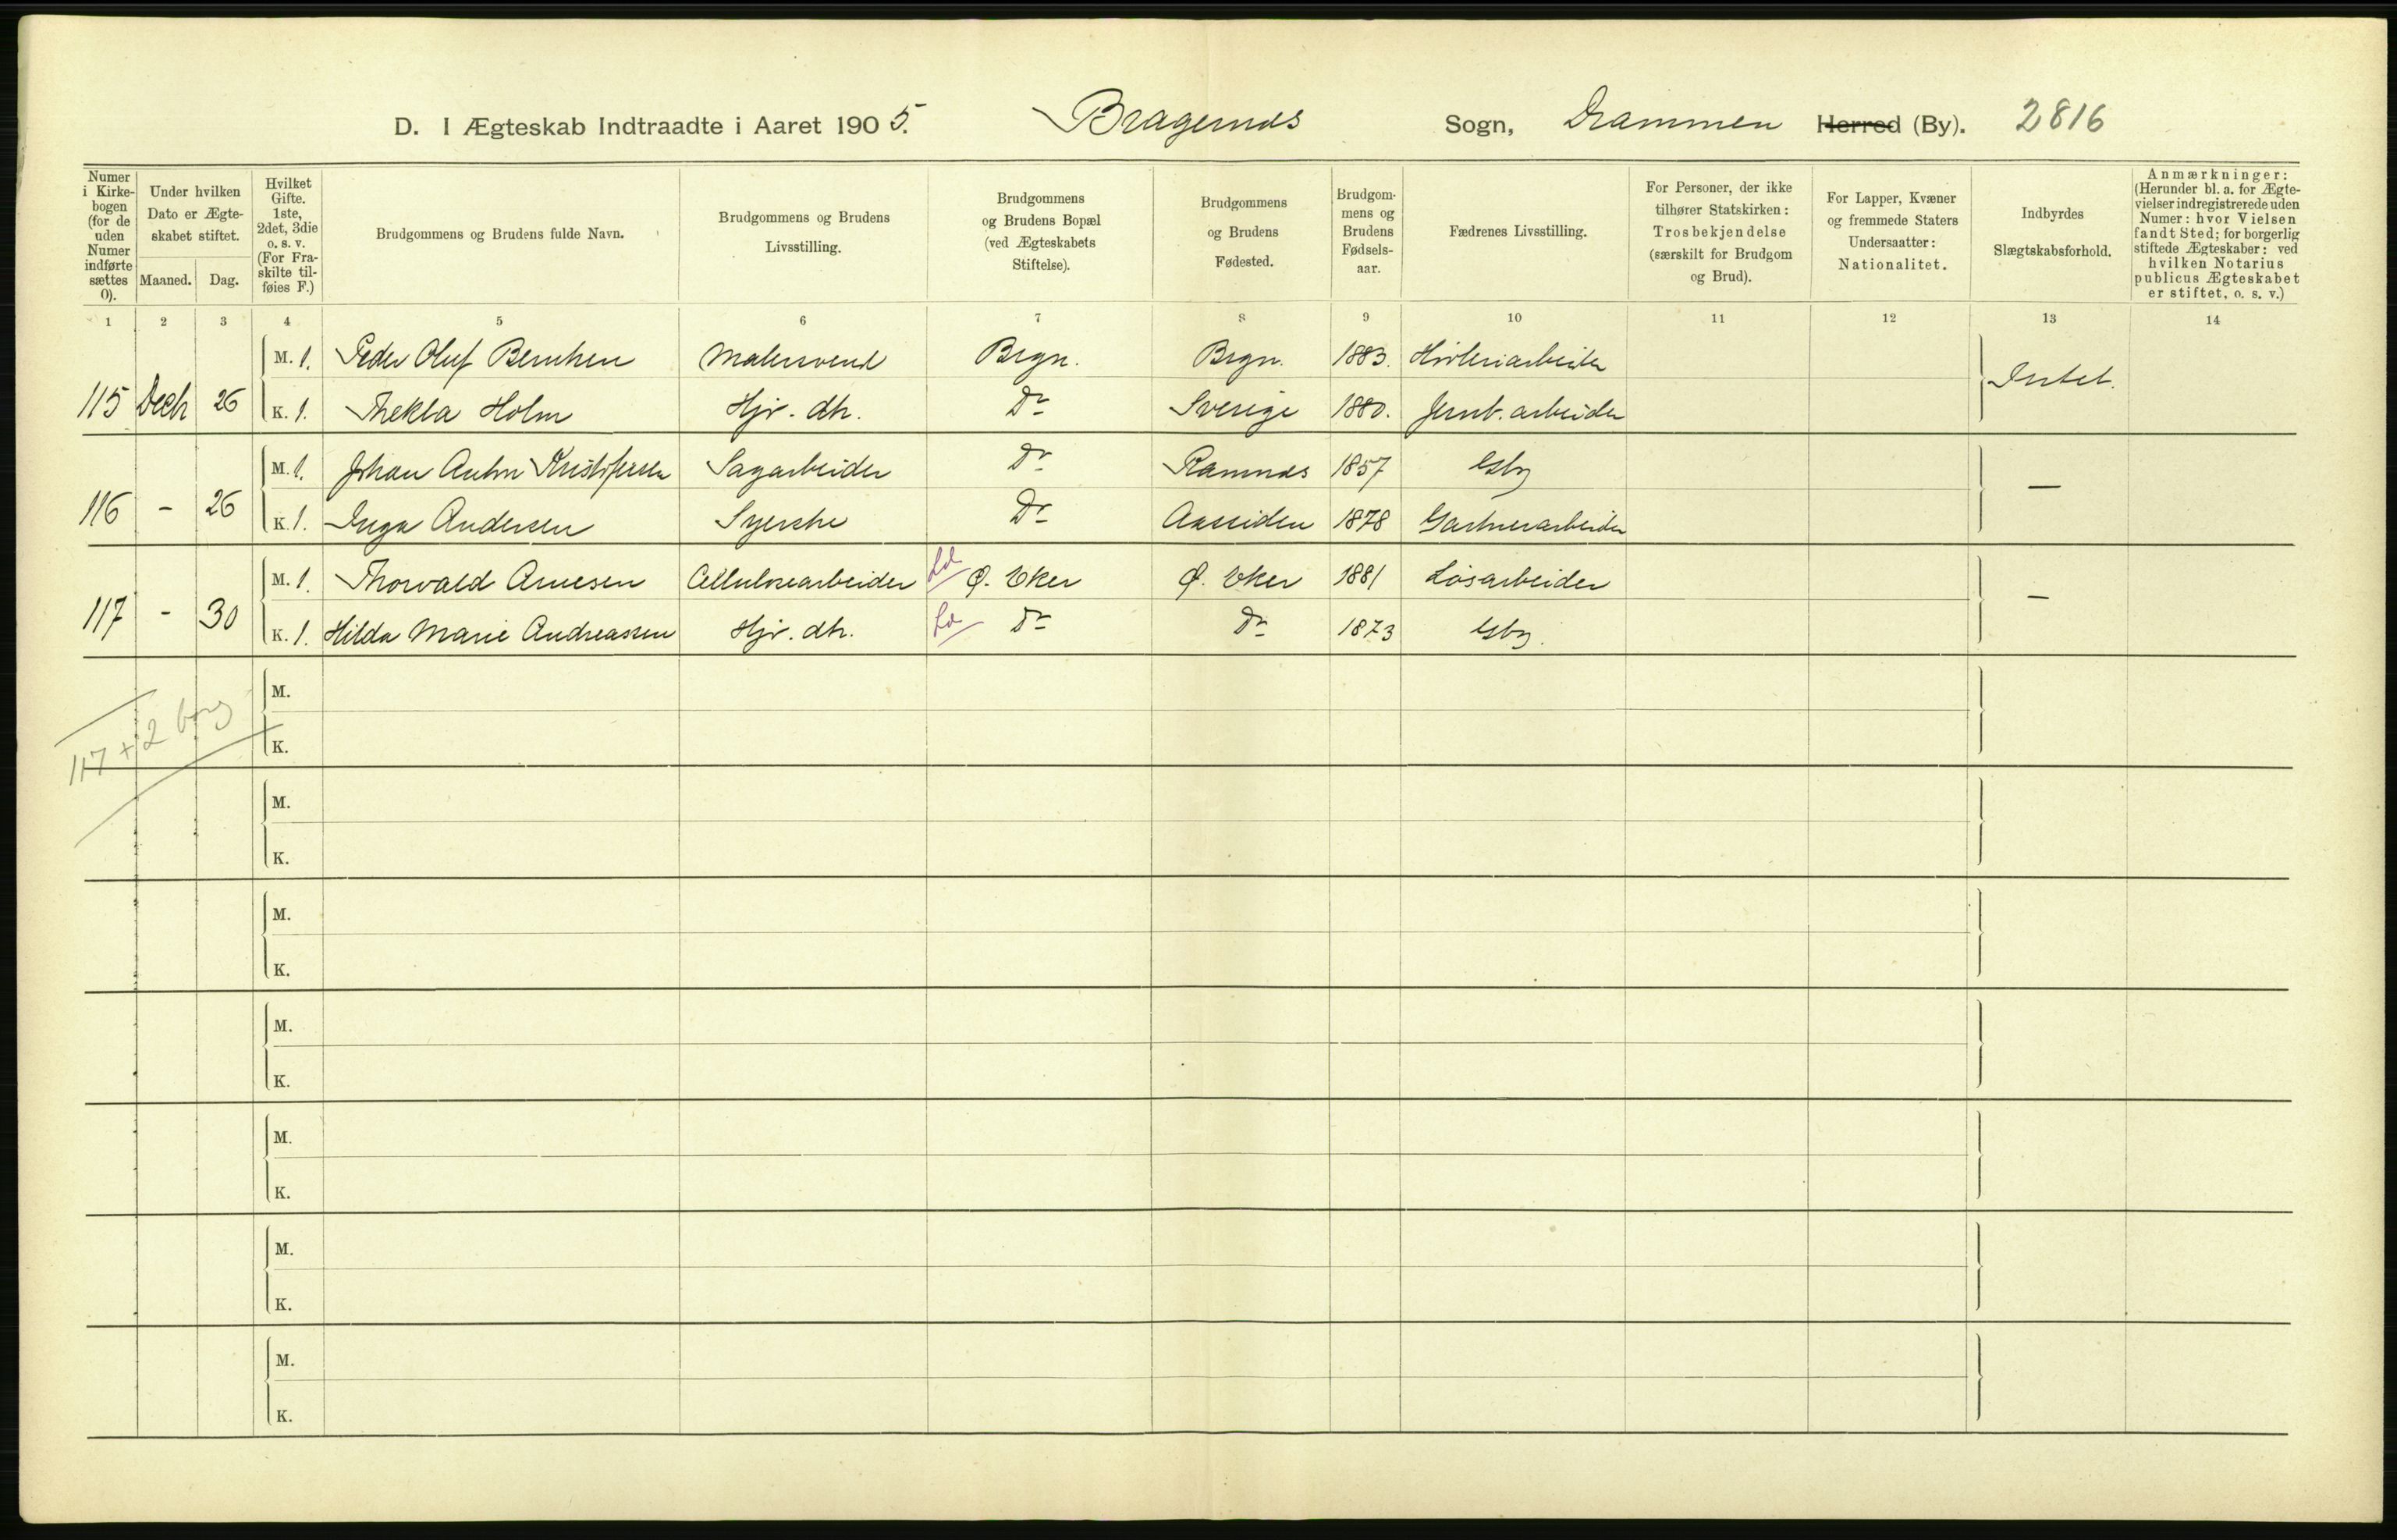 D. I Ægteskab Indtraadte i Aaret 1905. Bragernæs Sogn, Drammen Herred (By). 2816
Numer i Kirkebogen (for de uden Numer indførte sættes 0).
Under hvilken Dato er Ægteskabet stiftet.
Maaned. Dag.
Hvilket Gifte. 1ste, 2det, 3die o. s. v. (For Fraskilte tilføies F.)
Brudgommens og Brudens fulde Navn.
Brudgommens og Brudens Livsstilling.
Brudgommens og Brudens Bopæl (ved Ægteskabets Stiftelse).
Brudgommens og Brudens Fødested.
Brudgommens og Brudens Fødselsaar.
Fædrenes Livsstilling.
For Personer, der ikke tilhører Statskirken: Trosbekjendelse (særskilt for Brudgom og Brud).
For Lapper, Kvæner og fremmede Staters Undersaatter: Nationalitet.
Indbyrdes Slægtskabsforhold.
Anmærkninger: (Herunder bl. a. for Ægtevielser indregistrerede uden Numer: hvor Vielsen fandt Sted; for borgerlig stiftede Ægteskaber: ved hvilken Notarius publicus Ægteskabet er stiftet, o. s. v.)
1 2 3 4 5 6 7 8 9 10 11 12 13 14
M. 1. Peder Oluf Berntsen Malersvend Brgn. Brgn. 1883. Høvleriarbeider Intet.
115 Decb 26 K. 1. Thekla Holm Hjv. dtr. Do Sverige 1880. Jernb. arbeider
M. 1. Johan Anton Kristofersen Sagarbeider Do Ramnæs 1857 —
116 - 26 K. 1. Inga Andersen Syerske Do Aassiden 1878 Gartnerarbeider
M. 1. Thorvald Arnesen Cellulosearbeider Ø. Eker Ø. Eker 1881 Løsarbeider —
117 - 30 K. 1. Hilda Marie Andreassen Hjv. dtr. Do Do 1873
M.
117 + 2 borg
K.
M.
K.
M.
K.
M.
K.
M.
K.
M.
K.
M.
K.